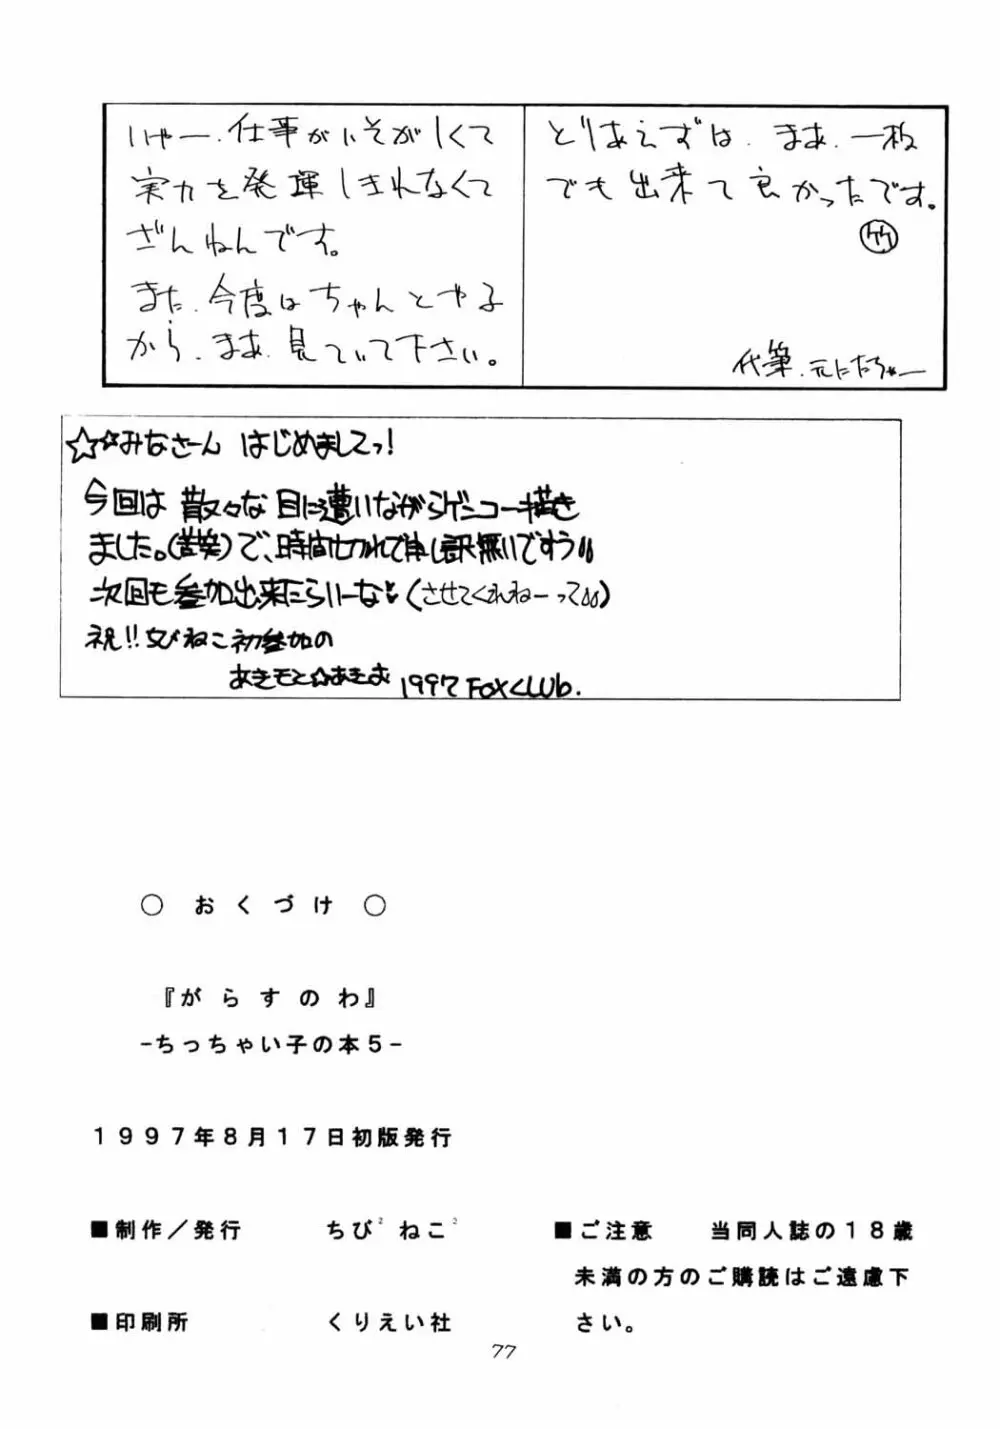 いやー、仕事がいそがしくて
実力を発揮しきれなくて
ざんねんです。
また、今度はちゃんとやる
から、まあ、見ていて下さい。
とりあえずは、まあ、一枚
でも出来て良かったです。
竹
代筆、元にたちゃー
☆☆みなさーん はじめましてっ!
今回は 散々な 目に遭いながらゲンコー描き
ました。(苦笑)で、時間切れで申し訳無いですぅ
次回も参加出来たらいーな♥(させてくれねーって)
祝!!ちびねこ初参加の
あきモと☆あきお 1997 FOXCLUb.
○ おくづけ ○
『がらすのわ』
-ちっちゃい子の本5-
1997年8月17日初版発行
■制作/発行 ちび²ねこ²
■印刷所 くりえい社
■ご注意 当同人誌の18歳
未満の方のご購読はご遠慮下
さい。
77